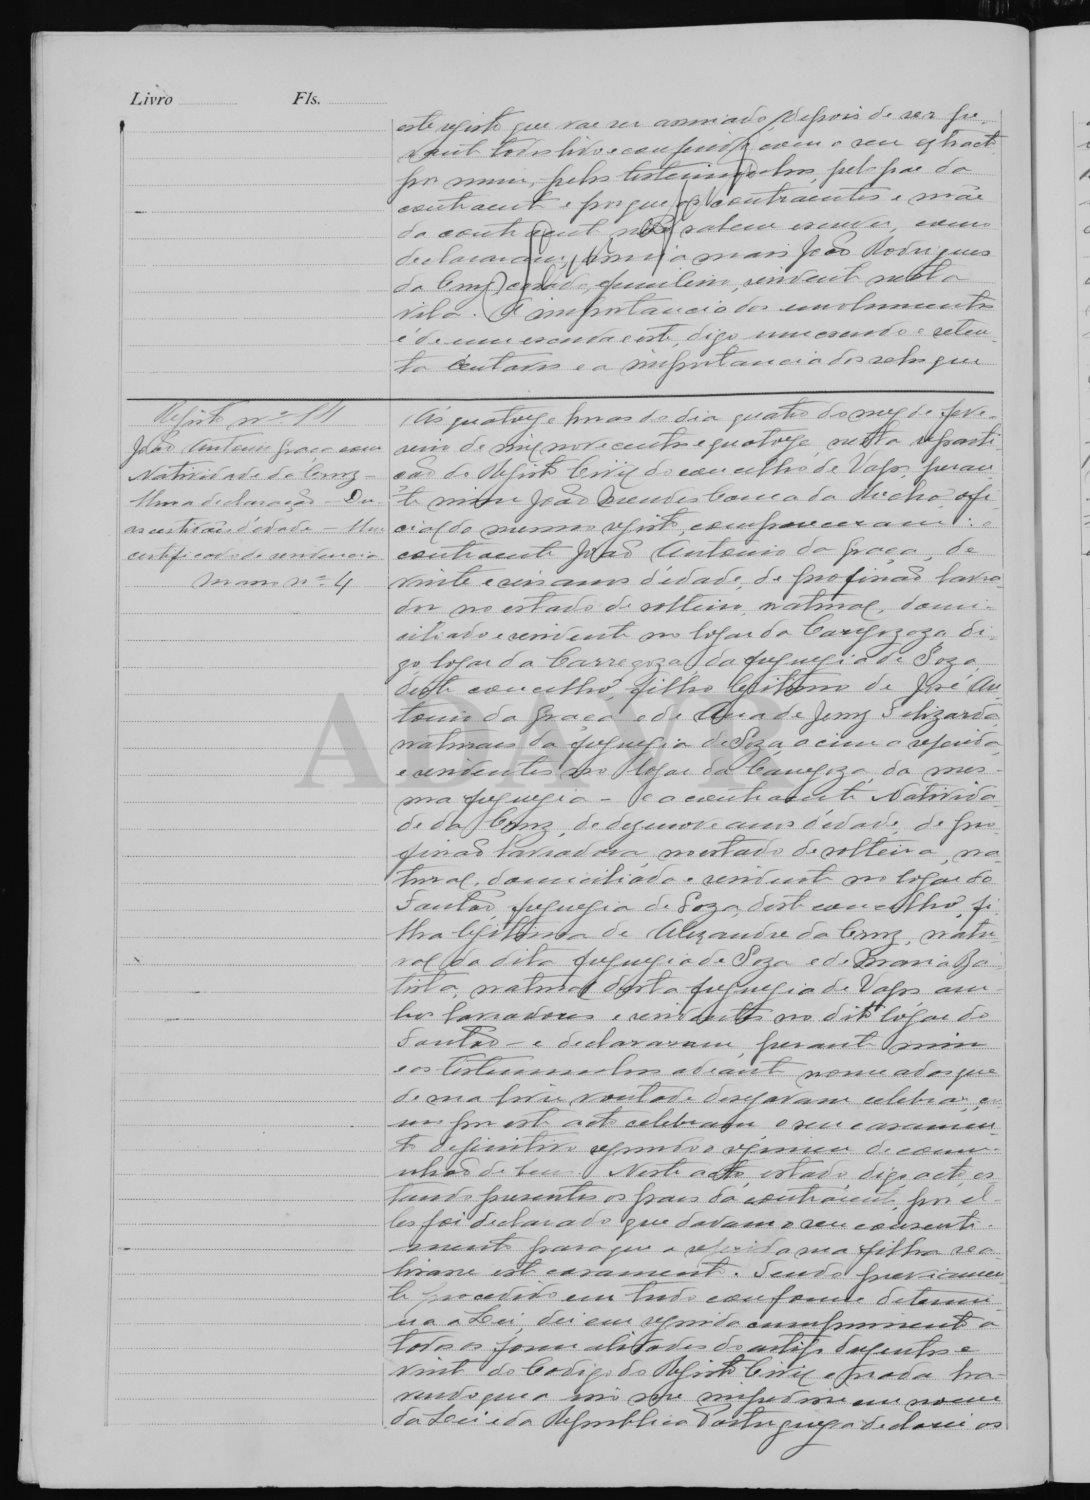 Livro Fls.
este registo que vae ser assinado, depois de ser pe-
rante todos lido e conferido com o seu extracto
por mim, pelas testemunhas, pelo pae da
contraente e porque os contraentes e mãe
da contraente não sabem escrever, como
declararam, assina mais João Rodrigues
da Cruz, casado, residente nesta
vila. A importancia dos emolumentos
é de um escudo e sete, digo um escudo e seten-
ta centavos e a importancia dos selos que
Registo nº 14
João Antonio Graça com
Natividade da Cruz -
Uma declaração - Du-
as certidões d'edade - Um
certificado de residencia
Maço nº 4
Ás quatorze horas do dia quatro do mez de feve-
reiro de mil novecentos e quatorze, nesta reparti-
ção do Registo Civil do concelho de Vagos, peran-
te mim João Mendes Correia da Rocha, ofi-
cial do mesmo registo, compareceram: o
contraente João Antonio da Graça, de
vinte e seis anos d'edade, de profissão lavra-
dor no estado de solteiro, natural, domi-
ciliado e residente no logar da Caregozoza di-
go logar da Carregoza da freguezia de Soza
deste concelho, filho legitimo de José An-
tonio da Graça e de Ana de Jesuz Felizarda
naturaes da freguezia de Soza, acima referida
e residentes no logar da Caregoza, da mes-
ma freguezia - e a contraente Nativida-
de da Cruz, de dezenove anos d'edade, de pro-
fissão lavradora, no estado de solteira, na-
tural, domiciliada e residente no logar do
Fontão, freguezia de Soza, deste concelho, fi-
lha legitima de Alexandre da Cruz, natu-
ral da dita freguezia de Soza e de Maria Ba-
tista, natural desta freguezia de Vagos am-
bos lavradores e residentes no dito logar do
Fontão - e declararam, perante mim
e as testemunhas adeante nomeadas que
de sua livre vontade desejavam celebrar, co-
mo por este acto celebram o seu casamen-
to definitivo segundo o regimen de comu-
nhão de bens. Neste acto, estado, digo acto, es-
tando presentes os paes da contraente, por el-
les foi declarado que davam o seu consenti-
mento para que a referida sua filha rea-
lisasse este casamento. Sendo previamen-
te procedido em tudo conforme determi-
na a Lei, dei em seguida cumprimento a
todas as formalidades do artigo duzentos e
vinte do Codigo do Registo Civil e nada ha-
vendo que a isso se impedisse em nome
da Lei e da Republica Portugueza declarei os
ADAVR